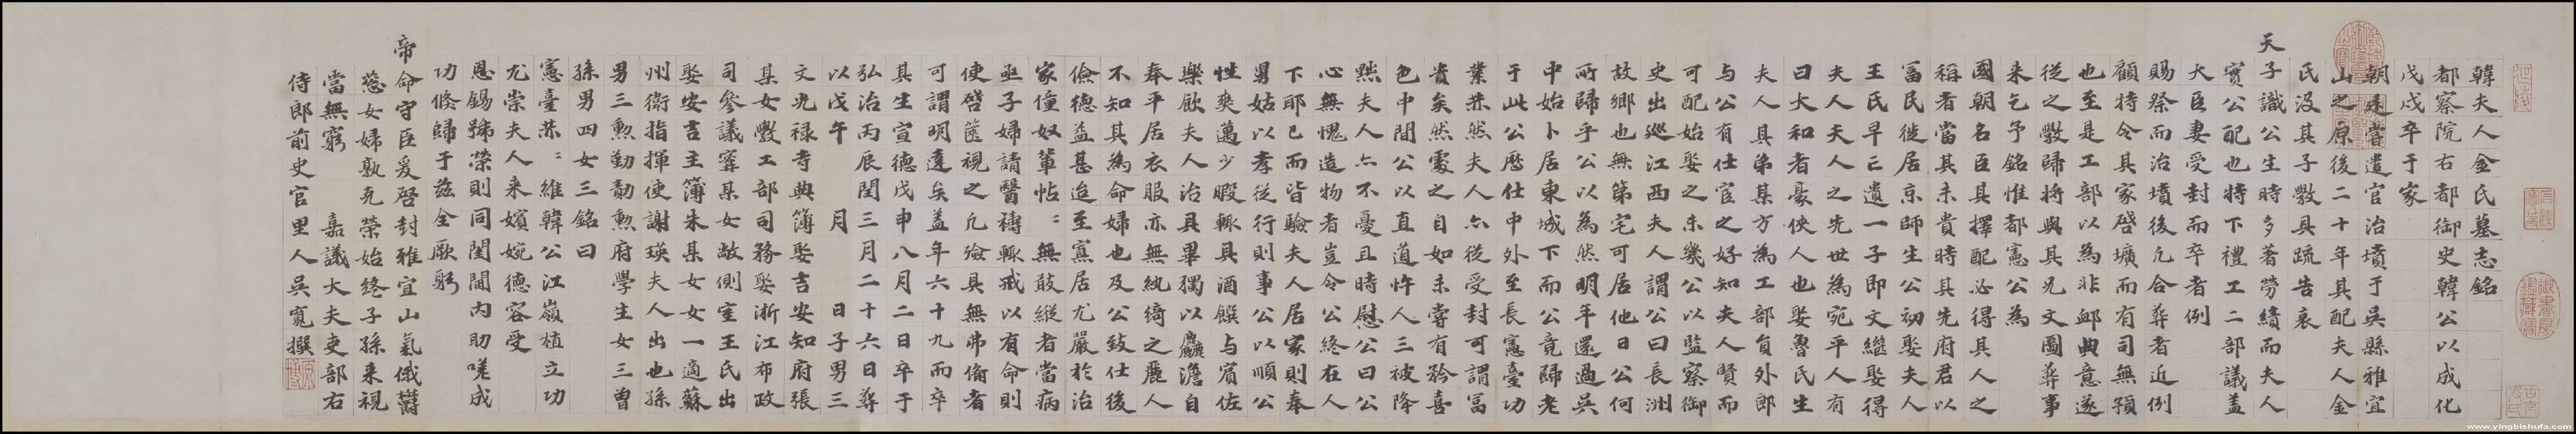 韓夫人金氏墓志銘
都察院右都御史韓公以成化
戊戌卒于家
朝廷嘗遣官治墳于吳縣雅宜
山之原後二十年其配夫人金
氏沒其子斆具疏告哀
天子識公生時多著勞績而夫人
實公配也特下禮工二部議蓋
大臣妻受封而卒者例
賜祭而治墳後凡合葬者近例
顧特令其家啓壙而有司無預
也至是工部以為非卹典意遂
從之斆歸將與其兄文圖葬事
来乞予銘惟都憲公為
國朝名臣其擇配必得其人之
稱者當其未貴時其先府君以
富民徙居京師生公初娶夫人
王氏早亡遺一子即文繼娶得
夫人夫人之先世為宛平人有
曰大和者豪俠人也娶魯氏生
夫人具弟某方為工部員外郎
与公有仕宦之好知夫人賢而
可配始娶之未幾公以監察御
史出巡江西夫人謂公曰長洲
故鄉也無第宅可居他日公何
所歸乎公以為然明年還過吳
中始卜居東城下而公竟歸老
于此公歷仕中外至長憲臺功
業赫然夫人亦從受封可謂冨
貴矣然處之自如未嘗有矜喜
色中間公以直道忤人三被降
黜夫人亦不憂且時慰公曰公
心無愧造物者豈令公終在人
下耶已而皆驗夫人居家則奉
舅姑以孝從行則事公以順公
性爽邁少暇輙具酒饌与賓佐
樂飲夫人治具畢獨以麤澹自
奉平居衣服亦無紈綺之麗人
不知其為命婦也及公致仕後
儉德益甚迨至寡居尤嚴於治
家僮奴輩帖〻無敢縱者當病
亟子婦請醫禱輙戒以有命則
使啓篋視之凡殮具無弗備者
可謂明達矣蓋年六十九而卒
其生宣德戊申八月二日卒于
弘治丙辰閏三月二十六日葬
以戊午　月　日子男三
文光禄寺典簿娶吉安知府張
某女斆工部司務娶浙江布政
司參議寗某女敔側室王氏出
娶安吉主簿朱某女女一適蘇
州衛指揮使謝瑛夫人出也孫
男三勲勤勣勲府學生女三曾
孫男四女三銘曰
憲臺赫〻維韓公江嶺植立功
尤崇夫人来嬪婉德容受
恩錫號榮則同閨閫内助嗟成
功倏歸于兹全厥躬
帝命守臣爰啓封雅宜山氣俄鬱
葱女婦孰克榮始終子孫来視
當無窮　嘉議大夫吏部右
侍郎前史官里人吳寬撰
www.yingbishufa.com